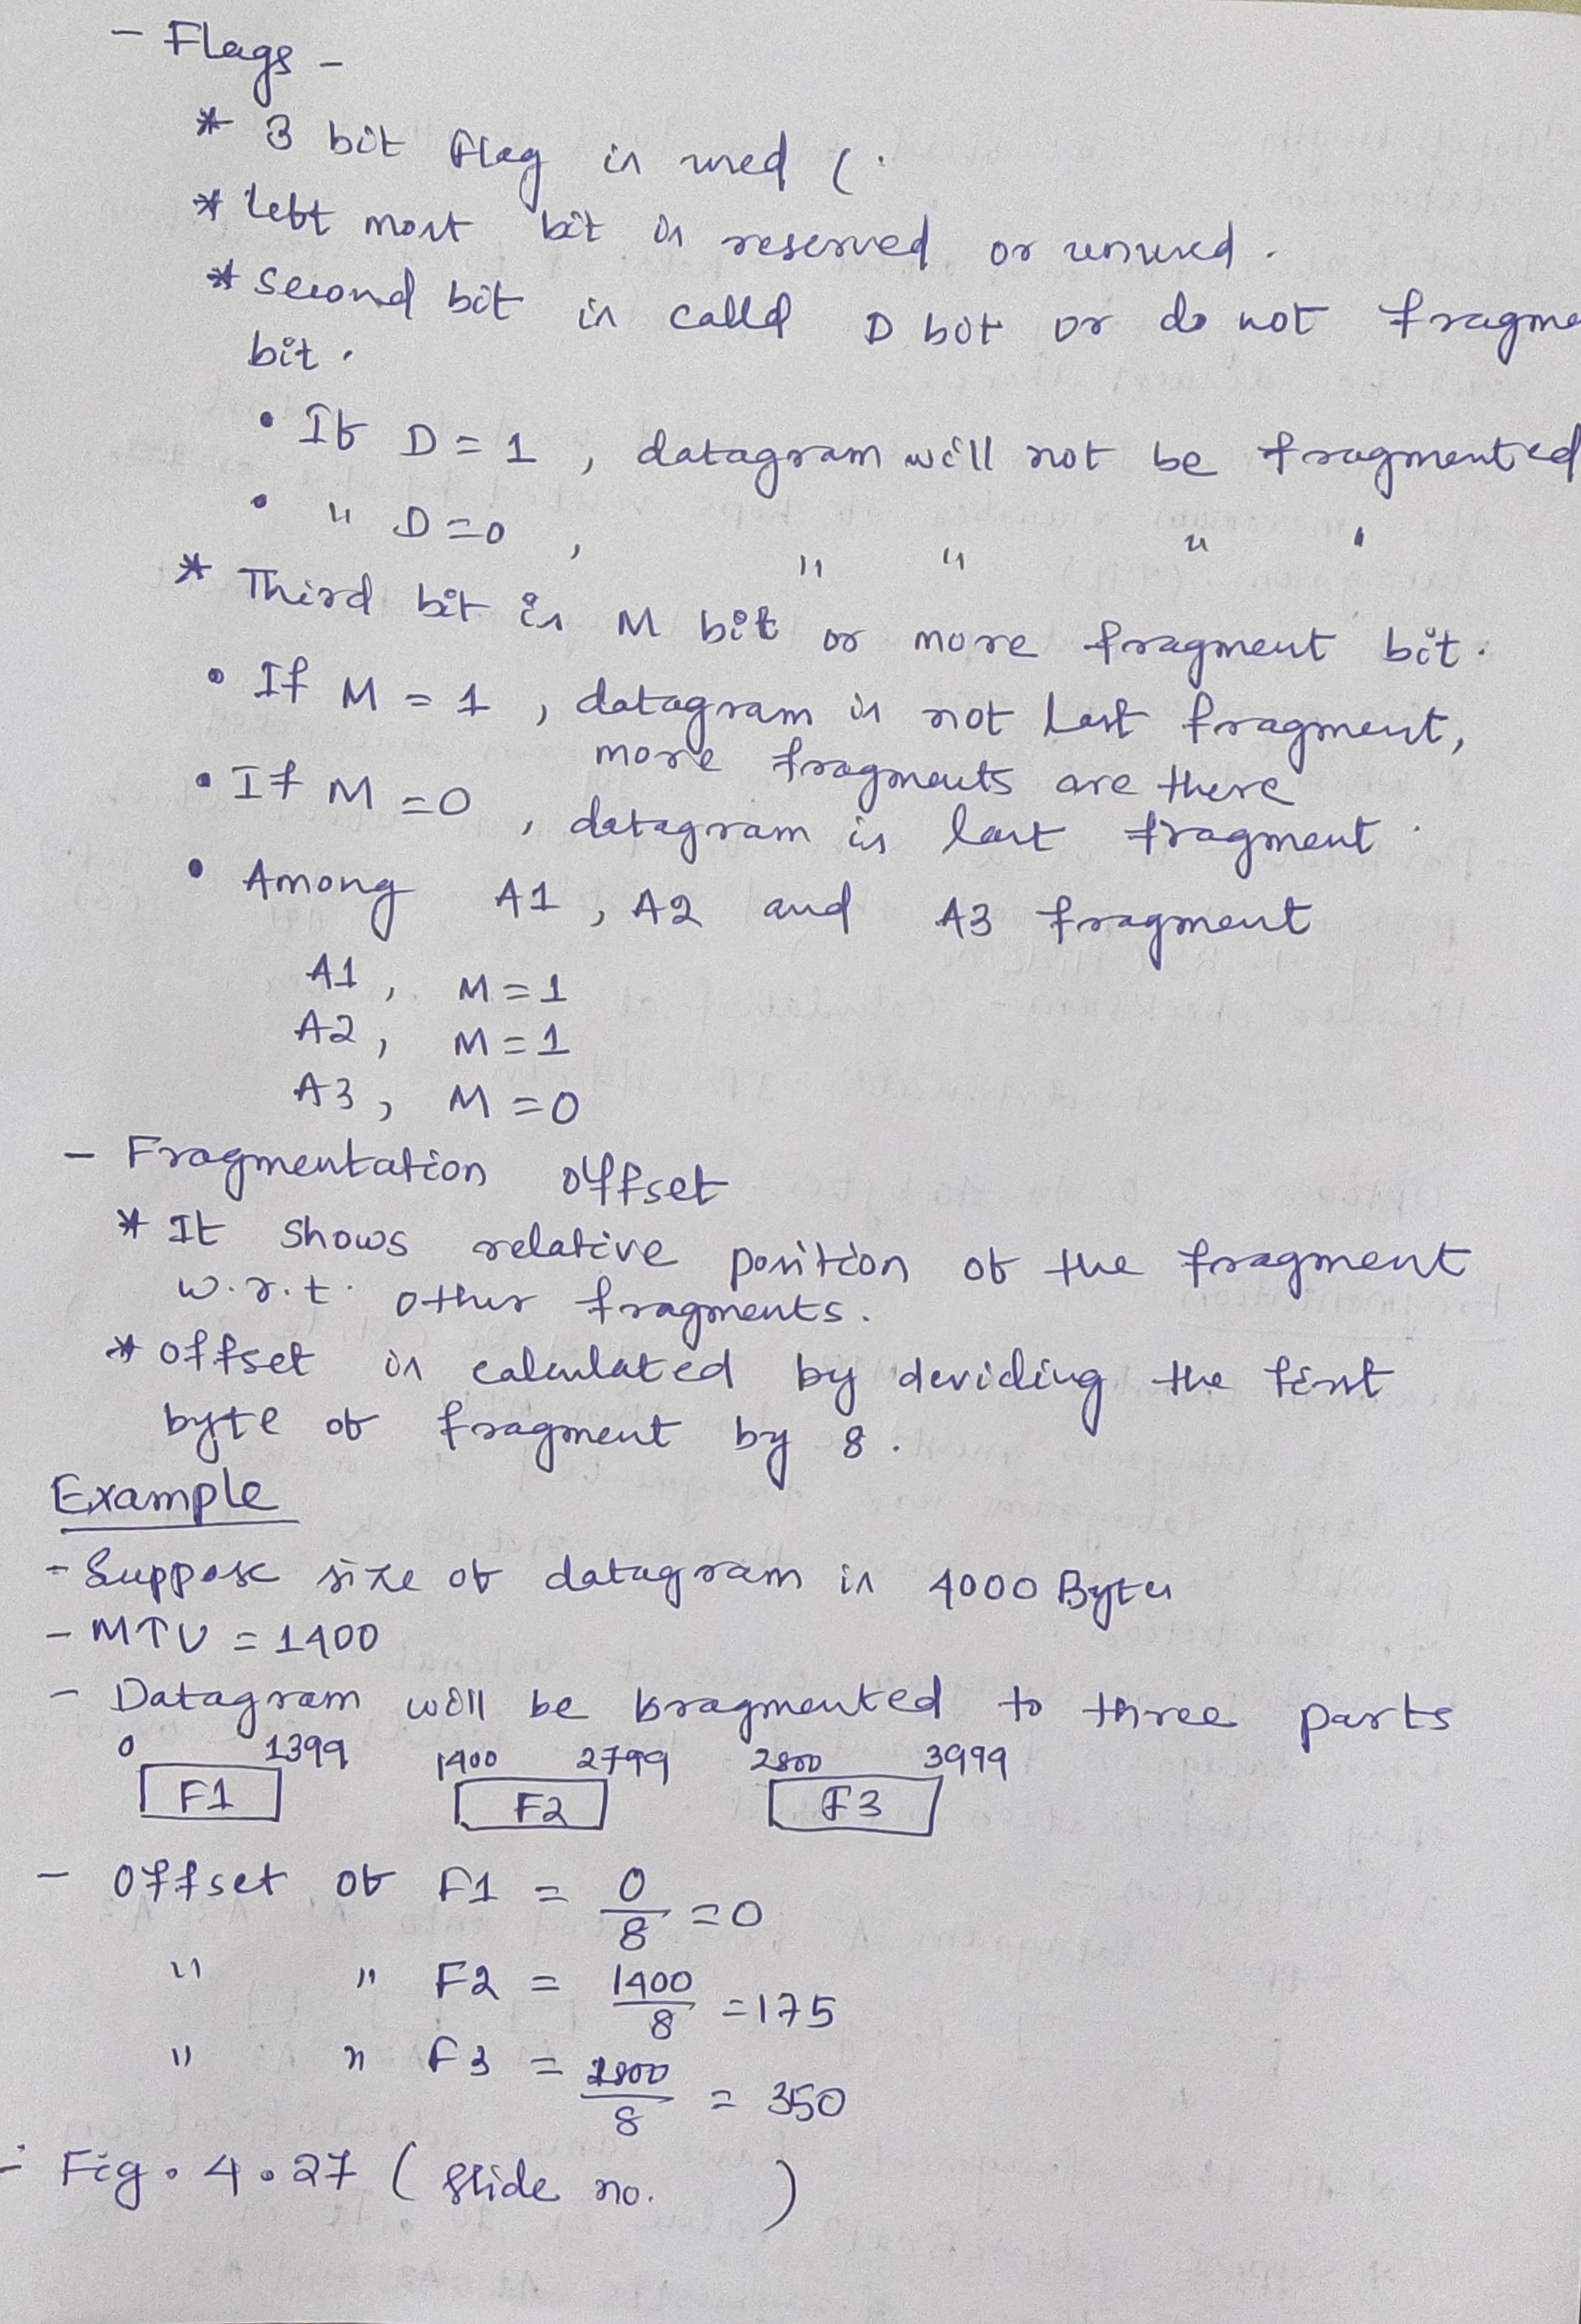 - Flags -
* 3 bit flag is used (.
* left most bit is reserved or unused.
* Second bit is calld D bit or do not fragme
bit.
• If D = 1, datagram will not be fragmented
• " D = 0, " " " "
* Third bit is M bit or more fragment bit.
• If M = 1, datagram is not last fragment,
more fragments are there
• If M = 0, datagram is last fragment.
• Among A1, A2 and A3 fragment
A1, M = 1
A2, M = 1
A3, M = 0
- Fragmentation offset
* It shows relative position of the fragment
w.r.t. other fragments.
* offset is calculated by deviding the first
byte of fragment by 8.
Example
- Suppose size of datagram is 4000 Bytes
- MTU = 1400
- Datagram will be fragmented to three parts
0 1399 1400 2799 2800 3999
F1 F2 F3
- Offset of F1 = 0/8 = 0
" " F2 = 1400/8 = 175
" " F3 = 2800/8 = 350
- Fig. 4.27 ( slide no. )